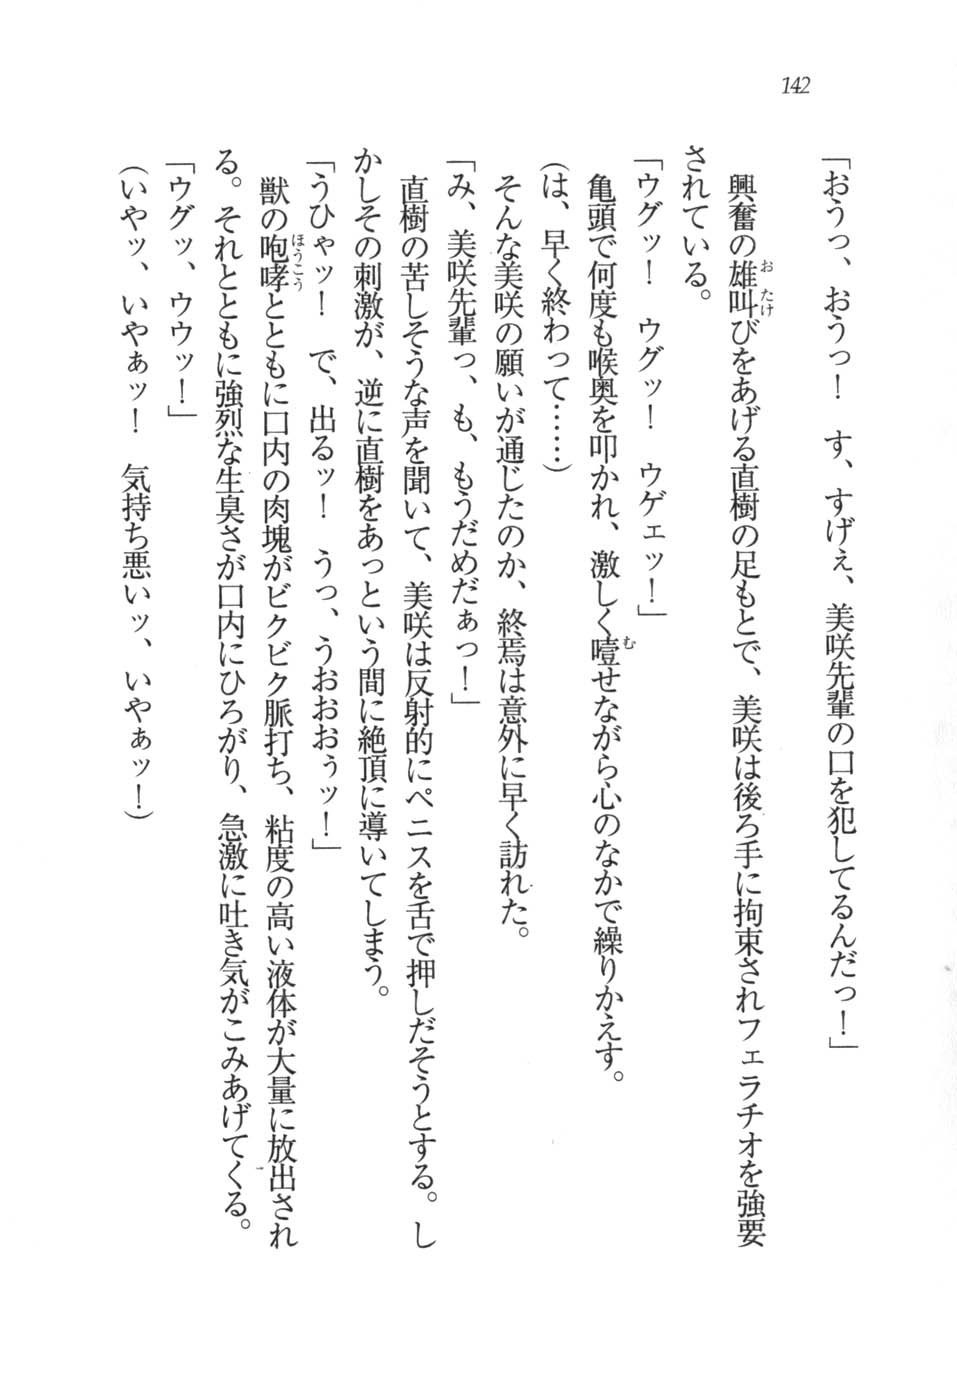 142
「おうっ、おうっ！　す、すげぇ、美咲先輩の口を犯してるんだっ！」
興奮の雄叫びをあげる直樹の足もとで、美咲は後ろ手に拘束されフェラチオを強要
されている。
「ウグッ！　ウグッ！　ウゲェッ！」
亀頭で何度も喉奥を叩かれ、激しく噎せながら心のなかで繰りかえす。
（は、早く終わって……）
そんな美咲の願いが通じたのか、終焉は意外に早く訪れた。
「み、美咲先輩っ、も、もうだめだぁっ！」
直樹の苦しそうな声を聞いて、美咲は反射的にペニスを舌で押しだそうとする。し
かしその刺激が、逆に直樹をあっという間に絶頂に導いてしまう。
「うひゃッ！　で、出るッ！　うっ、うおおおぅッ！」
獣の咆哮とともに口内の肉塊がビクビク脈打ち、粘度の高い液体が大量に放出され
る。それとともに強烈な生臭さが口内にひろがり、急激に吐き気がこみあげてくる。
「ウグッ、ウウッ！」
（いやッ、いやぁッ！　気持ち悪いッ、いやぁッ！）